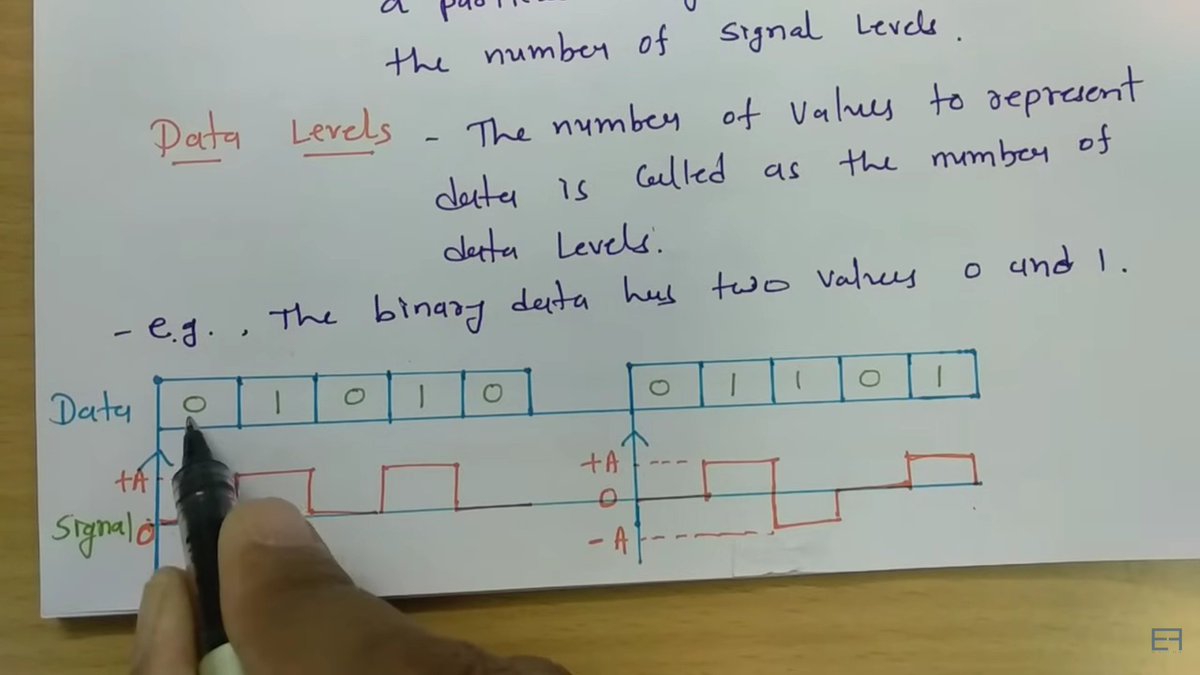 the number of signal Levels.
Data Levels - The number of values to represent
data is called as the number of
data Levels.
- e.g., The binary data has two values 0 and 1.
Data 0 1 0 1 0 0 1 1 0 1
+A +A
Signal 0 0
-A